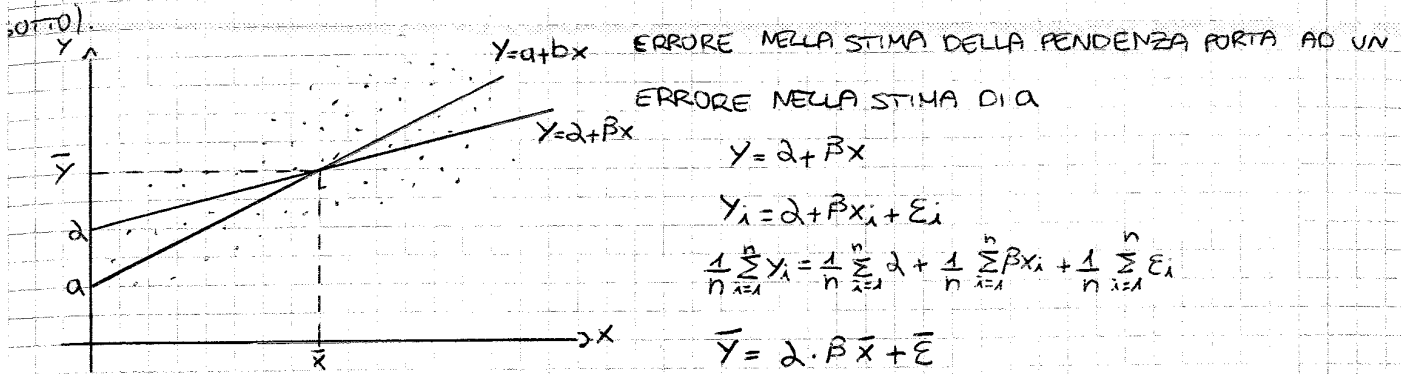 SOTTO).
Y
Y=a+bx
ERRORE NELLA STIMA DELLA PENDENZA PORTA AD UN
ERRORE NELLA STIMA DI a
Y=α+βx
Y̅
Y=α+βx
α
Yᵢ=α+βxᵢ+εᵢ
a
1/n ∑ᵢ₌₁ⁿ Yᵢ = 1/n ∑ᵢ₌₁ⁿ α + 1/n ∑ᵢ₌₁ⁿ βxᵢ + 1/n ∑ᵢ₌₁ⁿ εᵢ
x
x̅
Y̅ = α·βx̅+ε̅